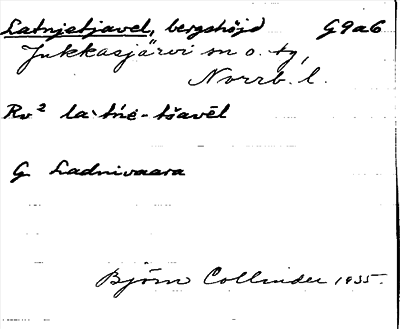 Latnjetjavel, bergshöjd G9a6
Jukkasjärvi sn o. tg,
Norrb. l.
Rv² la·tńe-tšavēl
G Ladnivaara
Björn Collinder 1935.